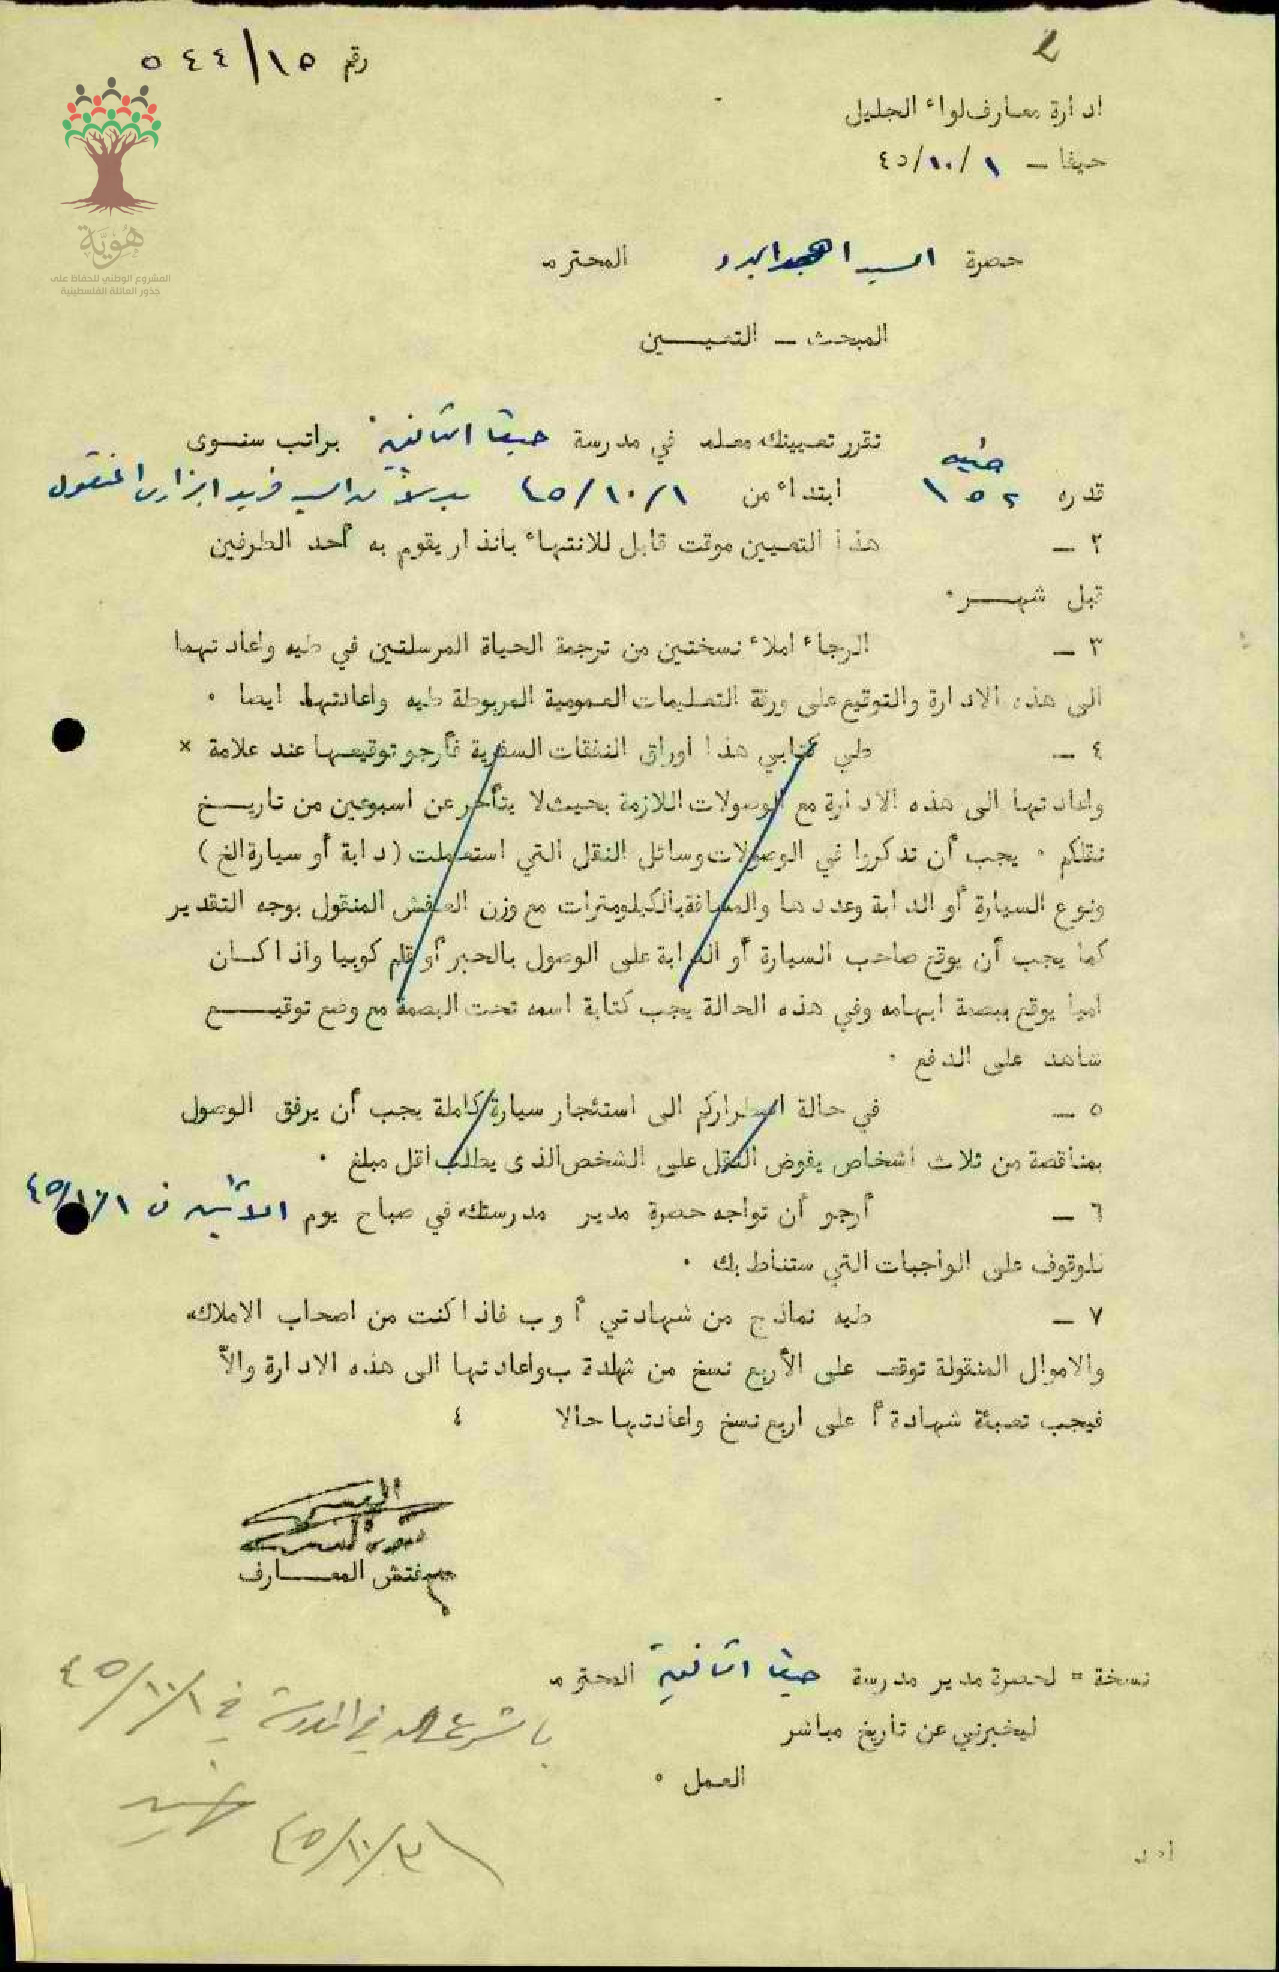 رقم ١٥/٥٤٤
ادارة معارف لواء الجليل
حيفا ـ ٤٥/١٠/١
هُوِيَّة
المشروع الوطني للحفاظ على
جذور العائلة الفلسطينية
حضرة السيد المحترم
المبحث ـ التعييــن
تقرر تعيينك معلم في مدرسة حيفا الثانوية براتب سنوى
جنيه
قدره ١٥٢ ابتداء من ٤٥/١٠/١ بدلا من السيد فريد المنقول
٢ ـ هذا التعيين موقت قابل للانتهاء بانذار يقوم به أحد الطرفين
قبل شهــر٠
٣ ـ الرجاء املاء نسختين من ترجمة الحياة المرسلتين في طيه واعادتهما
الى هذه الادارة والتوقيع على ورقة التعليمات العمومية المربوطة طيه واعادتها ايضا ٠
٤ ـ طي كتابي هذا اوراق النفقات السفرية فأرجو توقيعها عند علامة ×
واعادتها الى هذه الادارة مع الوصولات اللازمة بحيث لا يتأخر عن اسبوعين من تاريــخ
نقلكم ٠ يجب أن تذكروا في الوصولات وسائل النقل التي استعملت (دابة أو سيارة الخ)
ونوع السيارة أو الدابة وعددها والمسافة بالكيلومترات مع وزن العفش المنقول بوجه التقدير
كما يجب أن يوقع صاحب السيارة أو الدابة على الوصول بالحبر أو قلم كوبيا واذا كــان
اميا يوقع ببصمة ابهامه وفي هذه الحالة يجب كتابة اسمه تحت البصمة مع وضع توقيــع
شاهد على الدفع ٠
٥ ـ في حالة اضطراركم الى استئجار سيارة كاملة يجب أن يرفق الوصول
بمناقصة من ثلاث اشخاص يفوض النقل على الشخص الذى يطلب اقل مبلغ ٠
٦ ـ أرجو أن تواجه حضرة مدير مدرستك في صباح يوم الاثنين في ٤٥/١٠/١
للوقوف على الواجبات التي ستناط بك ٠
٧ ـ طيه نماذج من شهادتي أ وب فاذا كنت من اصحاب الاملاك
والاموال المنقولة توقع على الأربع نسخ من شهادة ب واعادتها الى هذه الادارة والاّ
فيجب تعبئة شهادة أ على اربع نسخ واعادتها حالا ٤
مفتش المعــارف
نسخة = لحضرة مدير مدرسة حيفا الثانوية المحترم
ليخبرني عن تاريخ مباشر
العمل ٠
باشر عمله في المدرسة في ٤٥/١٠/١
٤٥/١٠/٣